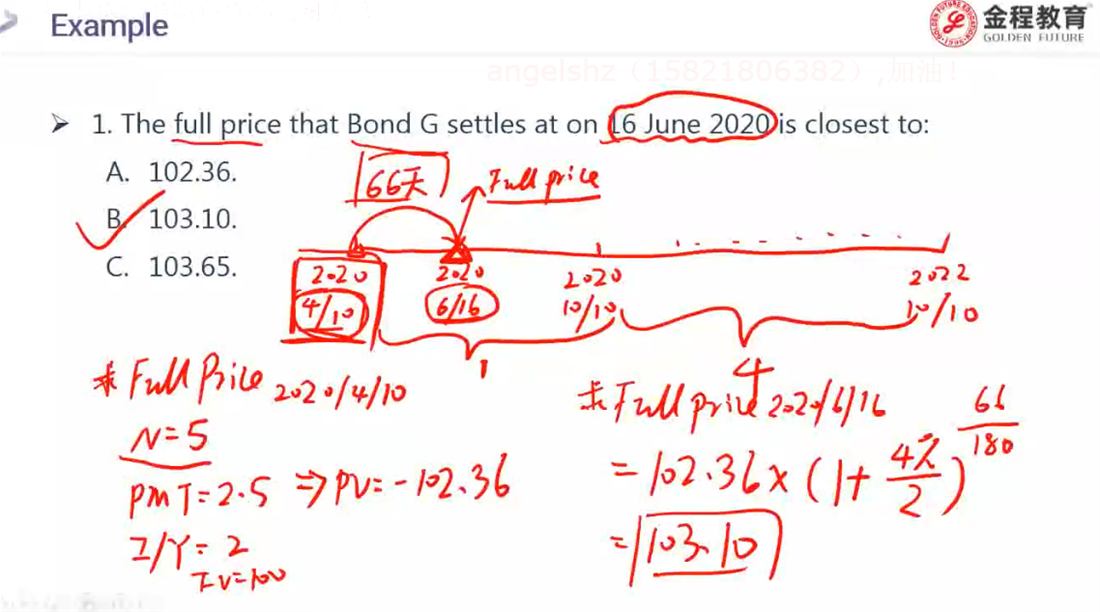 Example
金程教育
GOLDEN FUTURE
angelshz（15821806382）,加油！
➢ 1. The full price that Bond G settles at on 16 June 2020 is closest to:
A. 102.36.
B. 103.10.
C. 103.65.
66天
Full price
2020
4/10
2020
6/16
2020
10/10
2022
10/10
1
4
求Full Price 2020/4/10
N=5
PMT=2.5 ⇒ PV=-102.36
I/Y=2
FV=100
求Full price 2020/6/16
=102.36×(1+4%/2)^66/180
=103.10